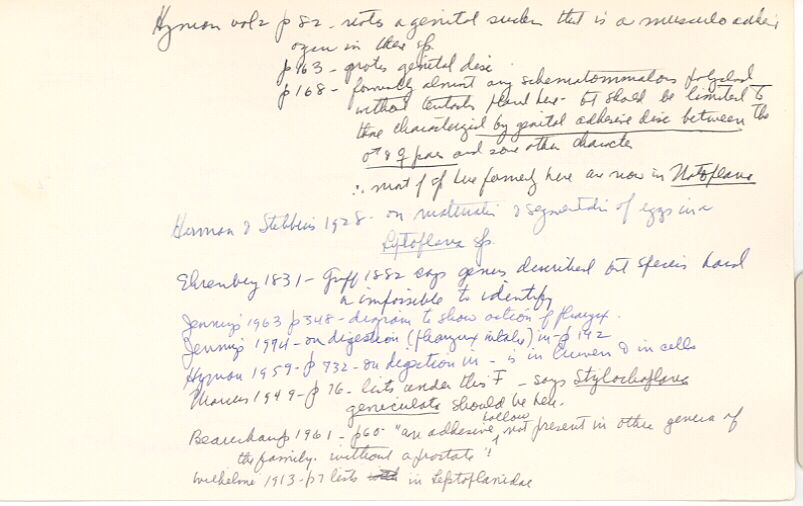 Hyman vol 2 p 82 - notes a genital sucker that is a musculo adhesive
organ in these sp.
p 163 - notes genital disc
p 168 - formerly almost any schematommatous polyclad
without tentacles placed here - but should be limited to
those characterized by genital adhesive disc between the
♂ & ♀ pores and some other characters
∴ most of sp here formerly here are now in Notoplana
& Stebbins 1928 - on maturation & segmentation of eggs in a
Leptoplana sp.
Ehrenberg 1831 - Graff 1882 says genus described but species hard
or impossible to identify
Jennings 1963 p 348 - diagram to show action of pharynx.
Jennings 1974 - on digestion (pharynx intake) in - p 192
Hyman 1959 - p 732 - on digestion in - is in lumen & in cells
Marcus 1949 - p 76 - lists under this F - says Stylochoplana
geniculata should be here.
Beauchamp 1961 - p 60 - "an adhesive hollow not present in other genera of
the family. without a prostate"!
Wilhelmi 1913 - p 7 lists in Leptoplanidae